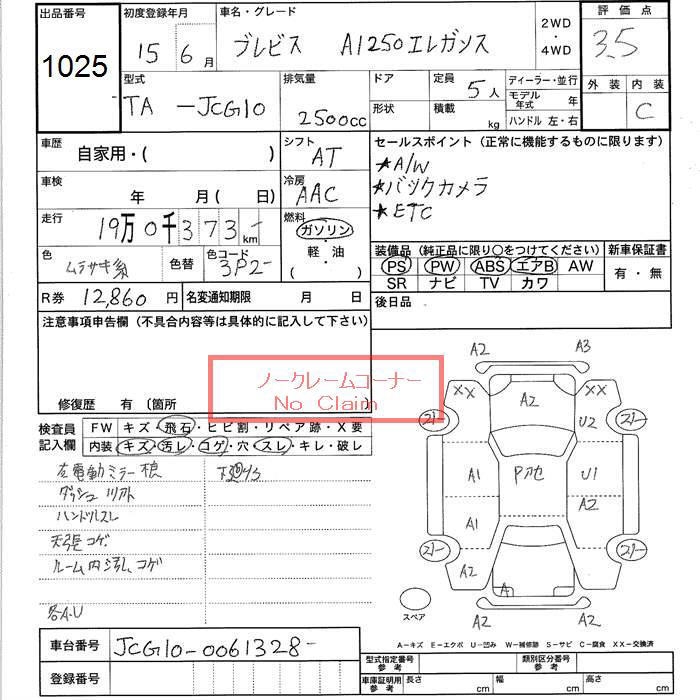 出品番号
1025
初度登録年月
15年6月
車名・グレード
ブレビス AI250エレガンス
2WD
・
4WD
評価点
3.5
外装 内装
C
型式
TA-JCG10
排気量
2500cc
ドア
形状
定員 5人
積載 kg
ディーラー・並行
モデル年式 年
ハンドル 左・右
車歴
自家用・( )
車検
年 月( 日)
走行
19万0千373- km
色
ムラサキ系
色替
色コード
3P2-
シフト
AT
冷房
AAC
燃料
ガソリン
・
軽・油
( )
セールスポイント(正常に機能するものに限ります)
★A/W
★バックカメラ
★ETC
装備品(純正品に限り○をつけてください)
PS PW ABS エアB AW
SR ナビ TV カワ
新車保証書
有・無
R券 12,860円
名変通知期限 月 日
後日品
注意事項申告欄(不具合内容等は具体的に記入して下さい)
修復歴 有〔箇所
ノークレームコーナー
No Claim
検査員記入欄
FW キズ・飛石・ヒビ割・リペア跡・X要
内装 キズ・汚レ・コゲ・穴・スレ・キレ・破レ
左電動ミラー
下廻サビ
ハンドルスレ
天張コゲ
ルーム内汚レ、コゲ
各A.U
A2 A3
XX A2 XX
21- U2 21-
A1 Pアセ U1
A2
A1
21- 21-
A2 A A2
A2 A2
スペア
A-キズ E-エクボ U-凹み W-補修跡 S-サビ C-腐食 XX-交換済
車台番号 JCG10-0061328-
登録番号
型式指定番号参考
類別区分番号参考
車庫証明用参考 長さ cm 幅 cm 高さ cm